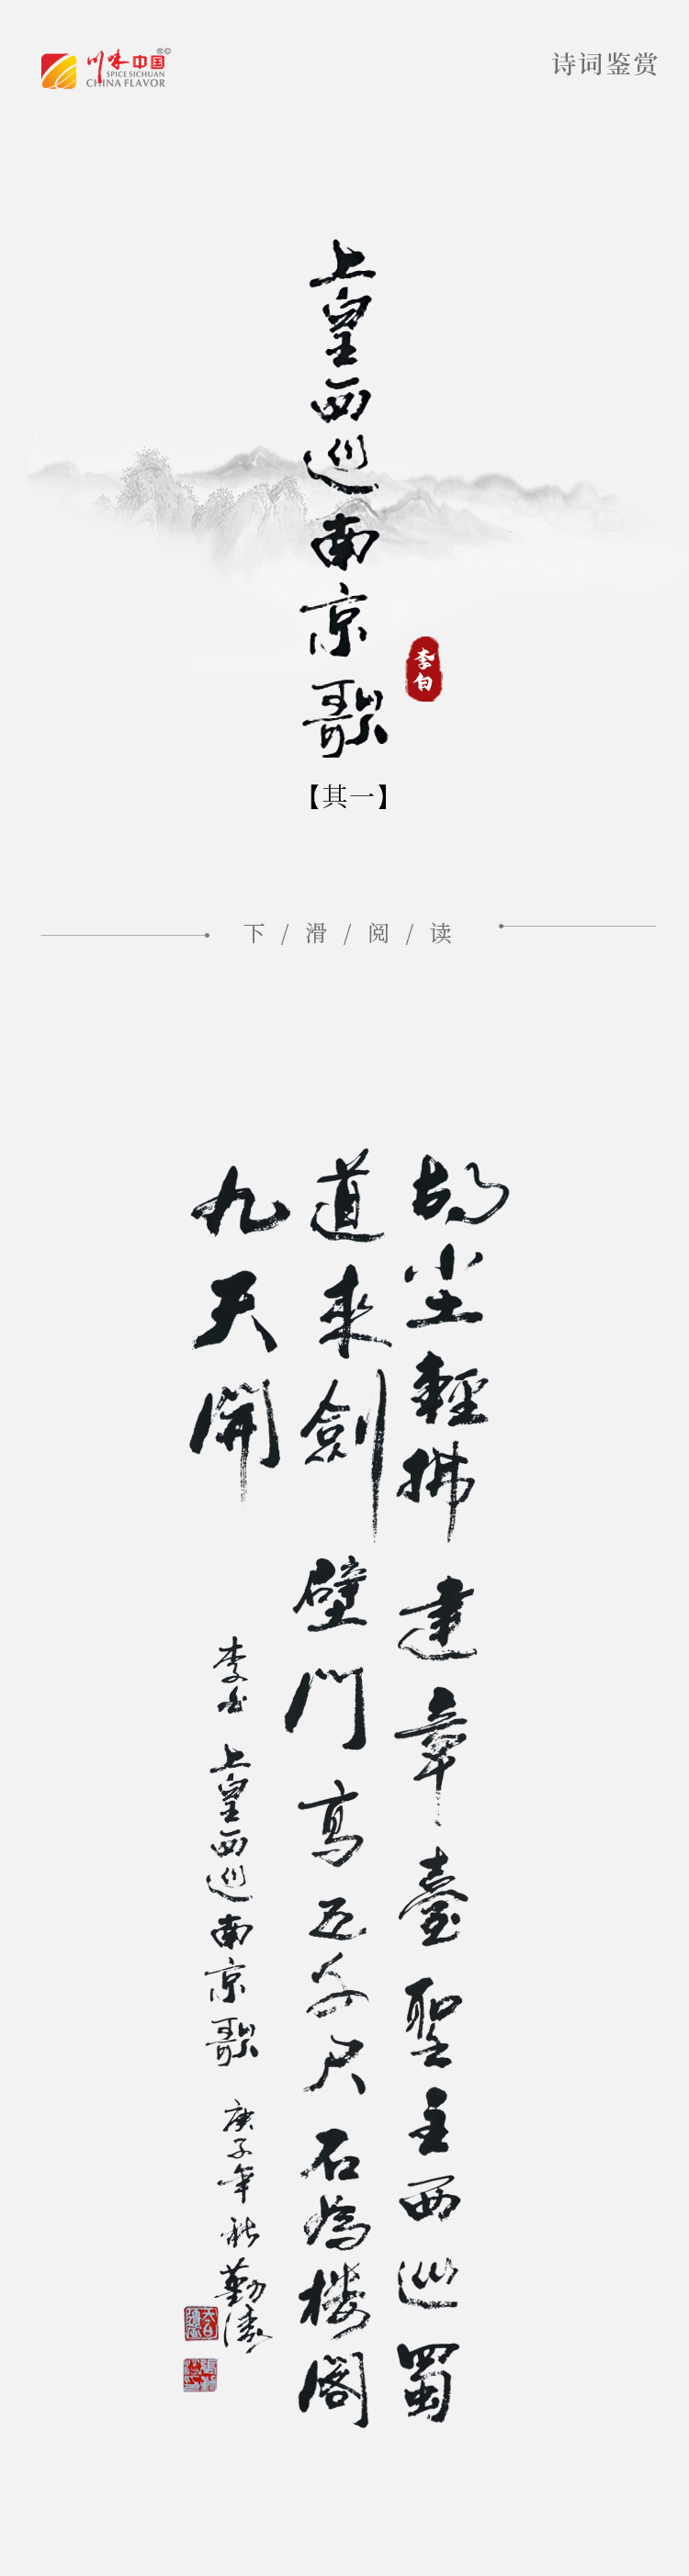 川味中国®©
SPICE SICHUAN
CHINA FLAVOR
诗词鉴赏
上皇西巡南京歌
李白
【其一】
下 / 滑 / 阅 / 读
胡尘輕拂建章臺聖主西巡蜀
道來劍壁門高五千尺石為楼閣
九天開
李白 上皇西巡南京歌 庚子年秋